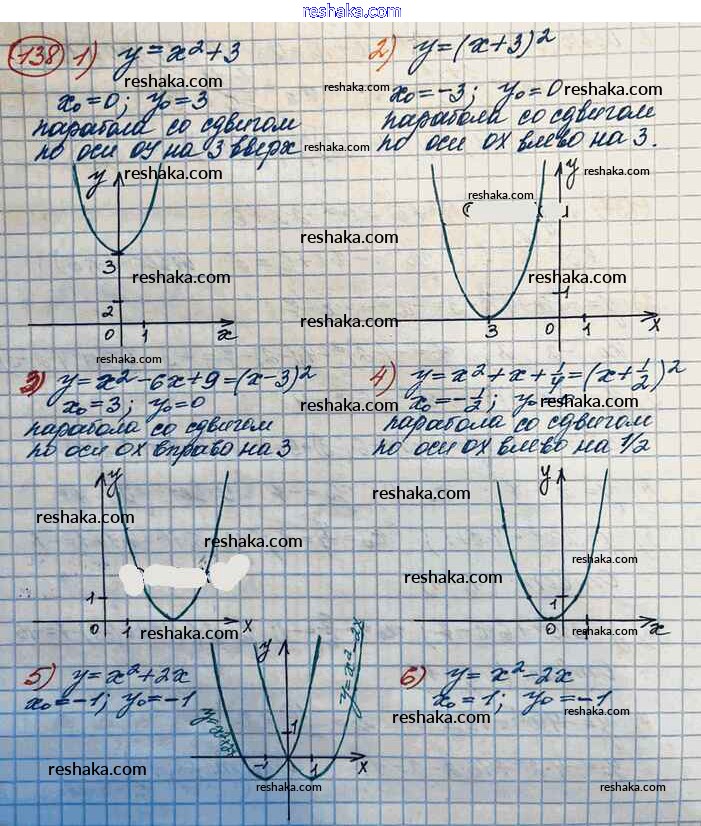 reshaka.com
138 1) y = x² + 3
x₀ = 0; y₀ = 3
парабола со сдвигом
по оси oy на 3 вверх
reshaka.com
reshaka.com
reshaka.com
2) y = (x+3)²
x₀ = -3; y₀ = 0
парабола со сдвигом
по оси ox влево на 3.
reshaka.com
reshaka.com
y
3
2
0 1 x
reshaka.com
reshaka.com
y
1
1
3 0 1 x
reshaka.com
reshaka.com
reshaka.com
3) y = x² - 6x + 9 = (x-3)²
x₀ = 3; y₀ = 0
парабола со сдвигом
по оси ox вправо на 3
reshaka.com
4) y = x² + x + 1/4 = (x + 1/2)²
x₀ = -1/2; y₀
парабола со сдвигом
по оси ox влево на 1/2
reshaka.com
reshaka.com
y
1
0 1 x
reshaka.com
reshaka.com
reshaka.com
y
1
0 x
reshaka.com
reshaka.com
reshaka.com
reshaka.com
5) y = x² + 2x
x₀ = -1; y₀ = -1
y
1
-1 1 x
y = x² - 2x
reshaka.com
reshaka.com
6) y = x² - 2x
x₀ = 1; y₀ = -1
reshaka.com
reshaka.com
reshaka.com